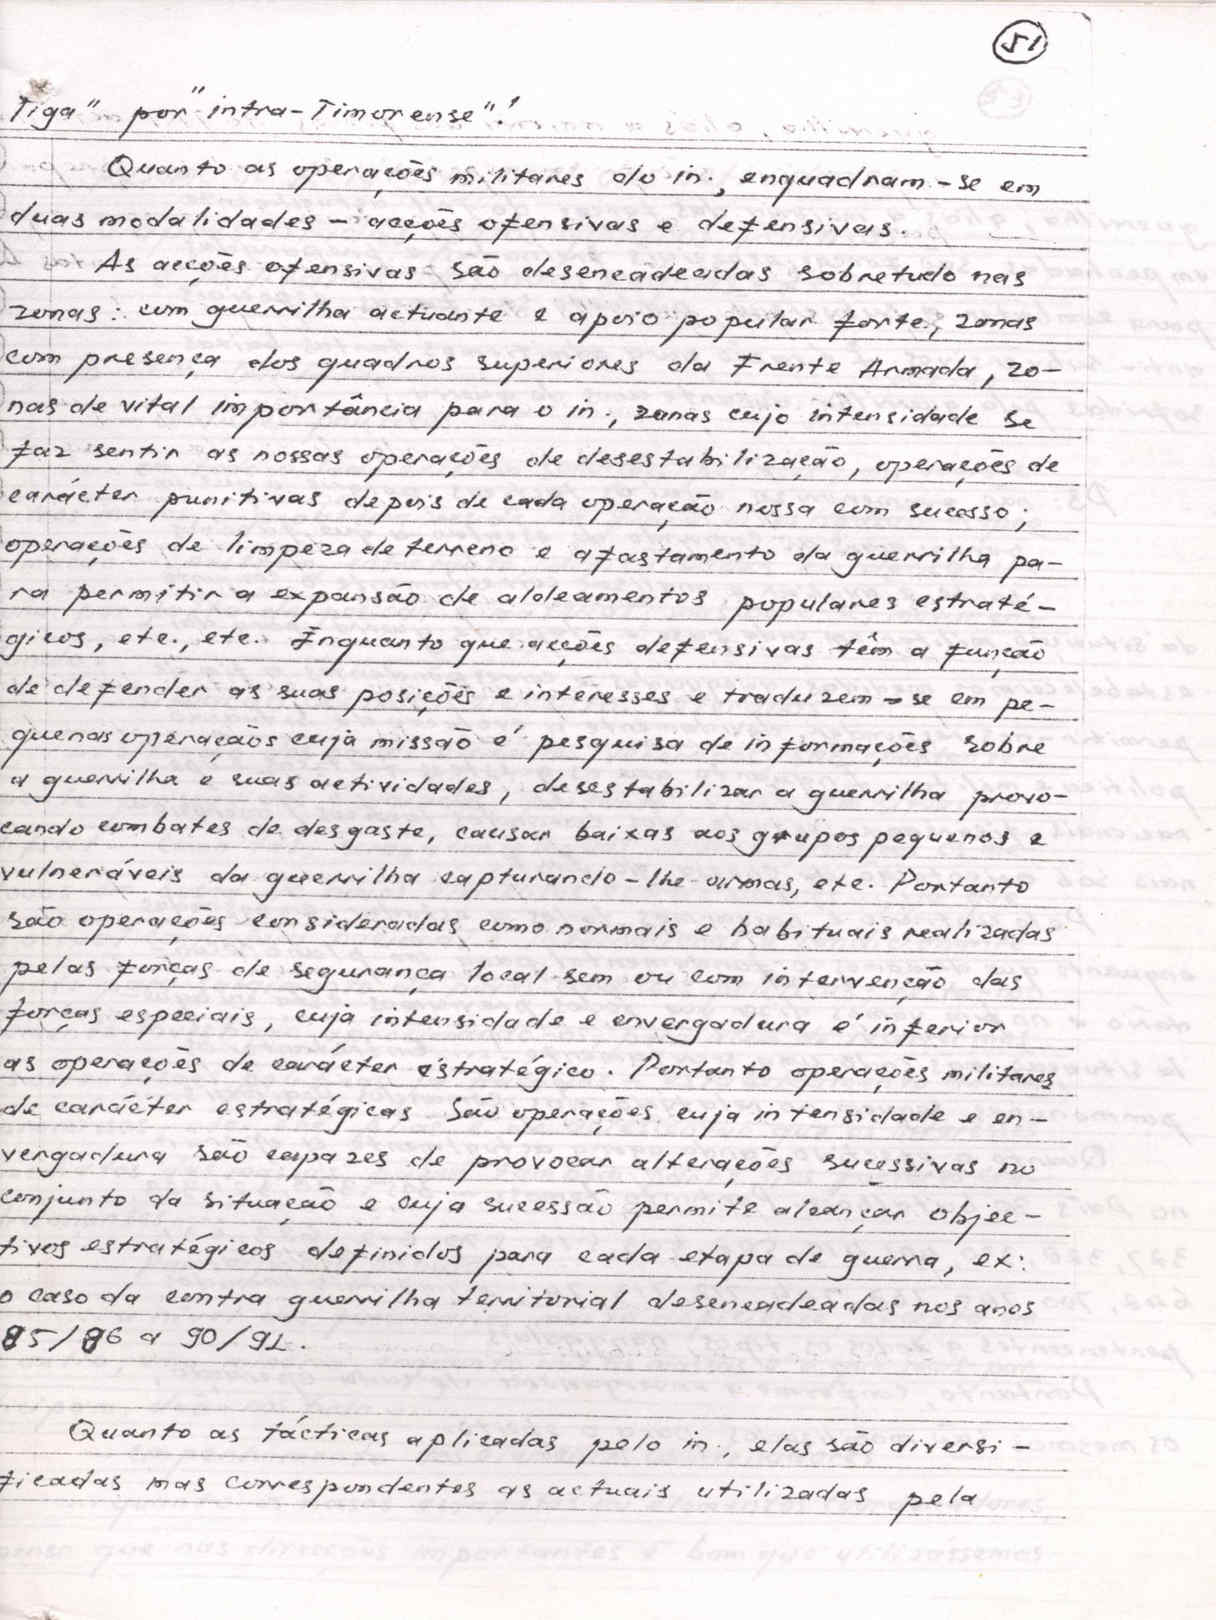 51
Tiga" por "intra-Timorense".'
Quanto as operações militares do in., enquadram-se em
duas modalidades - acções ofensivas e defensivas.
As acções ofensivas são desencadeadas sobretudo nas
zonas: com guerrilha actuante e apoio popular forte, zonas
com presença dos quadros superiores da Frente Armada, zo-
nas de vital importância para o in., zonas cujo intensidade se
faz sentir as nossas operações de desestabilização, operações de
carácter punitivas depois de cada operação nossa com sucesso;
operações de limpeza de terreno e afastamento da guerrilha pa-
ra permitir a expansão de aldeamentos populares estraté-
gicos, etc., etc. Enquanto que acções defensivas têm a função
de defender as suas posições e interesses e traduzem-se em pe-
quenas operaçãos cuja missão é pesquisa de informações sobre
a guerrilha e suas actividades, desestabilizar a guerrilha provo-
cando combates de desgaste, causar baixas aos grupos pequenos e
vulneráveis da guerrilha capturando-lhe armas, etc. Portanto
são operações consideradas como normais e habituais realizadas
pelas forças de segurança local sem ou com intervenção das
forças especiais, cuja intensidade e envergadura é inferior
as operações de carácter estratégico. Portanto operações militares
de carácter estratégicas são operações cuja intensidade e en-
vergadura são capazes de provocar alterações sucessivas no
conjunto da situação e cuja sucessão permite alcançar objec-
tivos estratégicos definidos para cada etapa de guerra, ex:
o caso da contra guerrilha territorial desencadeadas nos anos
85/86 a 90/91.
Quanto as tácticas aplicadas pelo in., elas são diversi-
ficadas mas correspondentes as actuais utilizadas pela